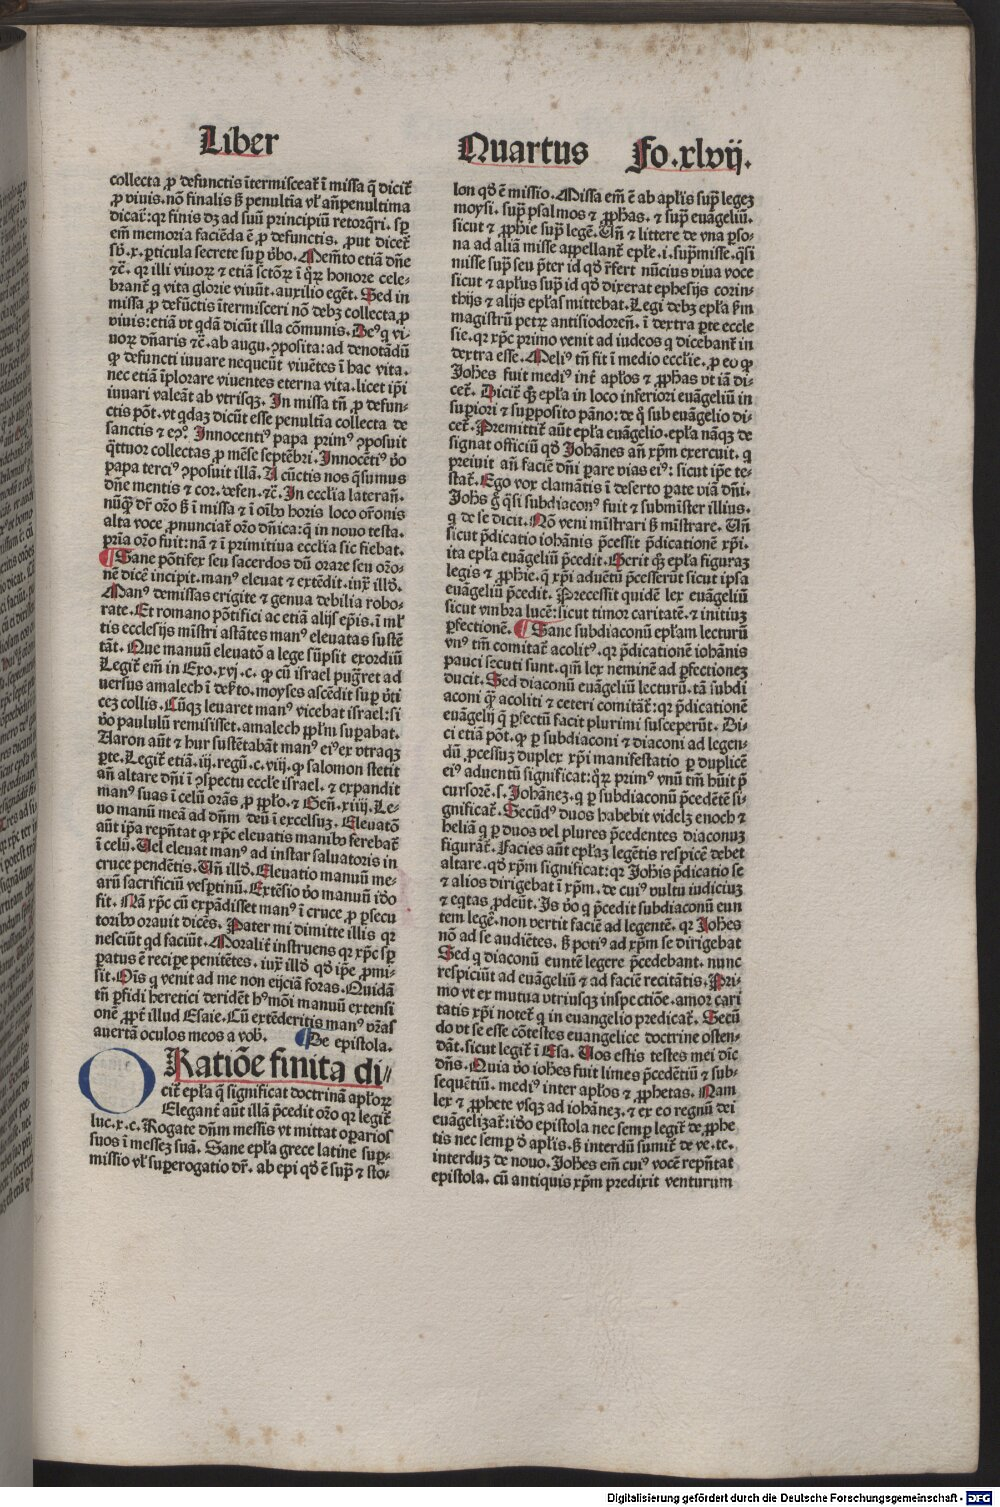 Liber
Quartus Fo.xlvij.
collecta ꝓ defunctis ĩtermisceat᷑ ĩ missa q̃ dicit᷑
ꝓ viuis. nõ finalis ß penultĩa vl’ añpenultima
dicat᷑: qꝛ finis dꝫ ad suũ principiũ retorq̃ri. sꝑ
em̃ memoria faciẽda ẽ ꝓ defunctis. ꝓut dicet᷑
sb̾. x. ꝑticula secrete suꝑ v̾bo. Mem̃to etiã dñe
⁊c̃. qꝛ illi viuoꝝ ⁊ etiã sctõꝝ ĩ q̃ꝝ honore cele-
brant᷑ q vita glorie viuũt. auxilio egẽt. Sed in
missa ꝓ defũctis ĩtermisceri nõ debꝫ collecta ꝓ
viuis: etiã vt qdã dicũt illa cõmunis. Deꝰ q vi-
uoꝝ dñaris ⁊c̃. ab augu. ꝯposita: ad denotãdũ
ꝙ defuncti iuuare nequeũt viuẽtes ĩ hac vita.
nec etiã ĩplorare viuentes eterna vita. licet ip̃i
iuuari valeãt ab vtrisqꝫ. In missa tñ ꝓ defun-
ctis põt. vt qdaꝫ dicũt esse penultĩa collecta de
sanctis ⁊ eꝯ°. Innocentiꝰ papa primꝰ ꝯposuit
q̃ttuor collectas ꝓ mẽse septẽbri. Innocẽtiꝰ v̾o
papa terciꝰ ꝯposuit illã. A cũctis nos q̃sumus
dñe mentis ⁊ cor. defen. ⁊c̃. In ecclĩa laterañ.
nũqꝫ dr̃ or̃o ß ĩ missa ⁊ ĩ oĩbꝫ horis loco or̃onis
alta voce ꝓnunciat᷑ or̃o dñica: q̃ in nouo testa.
pria or̃o fuit: nã ⁊ ĩ primitiua ecclĩa sic fiebat.
¶ Sane põtifex seu sacerdos dũ orare seu or̃o-
nẽ dicẽ incipit. manꝰ eleuat ⁊ extẽdit. iux̃ illđ.
Manꝰ demissas erigite ⁊ genua debilia robo-
rate. Et romano põtifici ac etiã alijs ep̃is. ĩ ml’
tis ecclesijs mĩstri astãtes manꝰ eleuatas sustẽ
tãt. Que manuũ eleuatõ a lege sũpsit exordiũ
Legit᷑ em̃ in Exo. xvj. c. ꝙ cũ israel pug̃ret ad
uersus amalech ĩ dek̃to. moyses ascẽdit suꝑ v̾ti
cez collis. Cũqꝫ leuaret manꝰ vicebat israel: si
v̾o paululũ remisisset. amalech ꝓpl’m suꝑabat.
Aaron aũt ⁊ hur sustẽtabãt manꝰ eiꝰ ex vtraqꝫ
ꝑte. Legit᷑ etiã. iij. regũ. c. viij. ꝙ salomon stetit
añ altare dñi ĩ ꝯspectu eccľe israel. ⁊ expandit
manꝰ suas ĩ celũ orãs ꝓ ppľo. ⁊ Geñ. xiiij. Le-
uo manũ meã ad dñm deũ ĩ excelsuꝫ. Eleuatõ
aũt ip̃a rep̃ntat ꝙ xp̃c eleuatis manibꝰ ferebat᷑
ĩ celũ. Uel eleuat manꝰ ad instar saluatoris in
cruce pendẽtis. Uñ illđ. Eleuatio manuũ me-
arũ sacrificiũ vesptinũ. Extẽsio v̾o manuũ iđo
fit. Nã xp̃c cũ expãdisset manꝰ ĩ cruce ꝓ ꝑsecu
toribꝰ orauit dicẽs. Pater mi dimitte illis qꝛ
nesciũt qđ faciũt. Moralit᷑ instruens qꝛ xp̃c sꝑ
paratus ẽ recipe penitẽtes. iux̃ illđ qđ ip̃e ꝓmi-
sit. Oĩs q venit ad me non eijciã foras. Quidã
tñ ꝑfidi heretici deridẽt hꝰmõi manuũ extensi
onẽ ꝓpt᷑ illud Esaie. Cũ extẽderitis manꝰ vr̃as
auertã oculos meos a vob̾. ¶ De epistola.
ORatiõe finita di
cit᷑ ep̃la q̃ significat doctrinã apl’oꝝ
Elegant᷑ aũt illã p̃cedit or̃o qꝛ legit᷑
luc. x. c. Rogate dñm messis vt mittat oꝑarios
suos ĩ messeꝫ suã. Sane ep̃la grece latine suꝑ-
missio vl’ suꝑerogatio dr̃. ab epi qđ ẽ sup̃ ⁊ sto-
lon qđ ẽ missio. Missa em̃ ẽ ab apl’is suꝑ legeꝫ
moysi. suꝑ psalmos ⁊ ꝓphas. ⁊ suꝑ euãgeliũ.
sicut ⁊ ꝓphie suꝑ legẽ. Uñ ⁊ littere de vna ꝑso-
na ad aliã misse appellant᷑ ep̃le. i. supmisse. q̃si
misse suꝑ seu p̃ter id qđ r̃fert nũcius viua voce
sicut ⁊ apl’us suꝑ id qđ dixerat ephesijs corin-
thijs ⁊ alijs ep̃las mittebat. Legi debꝫ ep̃la ẞm
magistrũ petꝝ antisiodoreñ. ĩ dextra ꝑte eccle
sie. qꝛ xp̃c primo venit ad iudeos q dicebant᷑ in
dextra esse. Meliꝰ tñ fit ĩ medio ecclĩe. ꝓ eo ꝙ
Joh̃es fuit mediꝰ int᷑ apl’os ⁊ ꝓphas vt iã di-
cet᷑. Dicit᷑ qꝫ ep̃la in loco inferiori euãgeliũ in
suꝑiori ⁊ supposito pãno: de q̃ sub euãgelio di-
cet᷑. Premittit᷑ aũt ep̃la euãgelio. ep̃la nãqꝫ de
signat officiũ qđ Joh̃anes añ xp̃m exercuit. q
preiuit añ faciẽ dñi parare vias eiꝰ: sicut ip̃e te-
stat᷑. Ego vox clamãtis ĩ deserto parate viã dñi.
Joh̃s g̃ q̃si subdiaconꝰ fuit ⁊ submĩster illius.
q de se dicit. Nõ veni mĩstrari ß mĩstrare. Uñ
sicut p̃dicatio ioh̃nis p̃cessit p̃dicationẽ xp̃i.
ita ep̃la euãgeliũ p̃cedit. Gerit qꝫ ep̃la figuraꝫ
legis ⁊ ꝓphie. q̃ xp̃i aduẽtũ p̃cesserũt sicut ipsa
euãgeliũ p̃cedit. Precessit quidẽ lex euãgeliũ
sicut vmbra lucẽ: sicut timor caritatẽ. ⁊ initiuꝫ
ꝑfectionẽ. ¶ Sane subdiaconũ ep̃lam lecturũ
vnꝰ tm̃ comitat᷑ acolitꝰ. qꝛ p̃dicationẽ ioh̃nis
pauci secuti sunt. qm̃ lex neminẽ ad ꝑfectioneꝫ
ducit. Sed diaconũ euãgeliũ lecturũ. tã subdi
aconi qꝫ acoliti ⁊ ceteri comitãt᷑: qꝛ p̃dicationẽ
euãgelij q ꝑfectũ facit plurimi susceperũt. Di-
ci etiã põt. ꝙ ꝑ subdiaconi ⁊ diaconi ad legen-
dũ ꝓcessuꝫ duplex xp̃i manifestatio ꝑ duplicẽ
eiꝰ aduentũ significat: q̃ꝝ primꝰ vnũ tm̃ hũit p̃
cursorẽ. s. Joh̃neꝫ. q ꝑ subdiaconũ p̃cedẽtẽ si-
gnificat᷑. Secũdꝰ duos habebit videlꝫ enoch ⁊
heliã q ꝑ duos vel plures p̃cedentes diaconuꝫ
figurãt᷑. Facies aũt ep̃laꝫ legẽtis respicẽ debet
altare. qđ xp̃m significat: qꝛ Joh̃is p̃dicatio se
⁊ alios dirigebat ĩ xp̃m. de cuiꝰ vultu iudiciuꝫ
⁊ eq̃tas ꝓdeũt. Is v̾o q p̃cedit subdiaconũ eun
tem legẽ. non vertit faciẽ ad legentẽ. qꝛ Joh̃es
nõ ad se audiẽtes. ß potiꝰ ad xp̃m se dirigebat
Sed q diaconũ euntẽ legere p̃cedebant. nunc
respiciũt ad euãgeliũ ⁊ ad faciẽ recitãtis. Pri-
mo vt ex mutua vtriusqꝫ inspectiõe. amor cari
tatis xp̃i notet᷑ q in euangelio predicat᷑. Secũ
do vt se esse cõtestes euangelice doctrine osten-
dãt. sicut legit᷑ ĩ Esa. Uos estis testes mei dic̃
dñs. Quia v̾o ioh̃es fuit limes p̃cedẽtiũ ⁊ sub-
sequẽtiũ. mediꝰ inter apl’os ⁊ ꝓphetas. Nam
lex ⁊ ꝓphete vsqꝫ ad ioh̃neꝫ. ⁊ ex eo regnũ dei
euãgeliꝫat᷑: iđo epistola nec semꝑ legit᷑ de ꝓphe
tis nec semꝑ đ apl’is. ß interdũ sumit᷑ de ve. te.
interduꝫ de nouo. Joh̃es em̃ cuiꝰ vocẽ rep̃ntat
epistola. cũ antiquis xp̃m predixit venturum
Digitalisierung gefördert durch die Deutsche Forschungsgemeinschaft - DFG